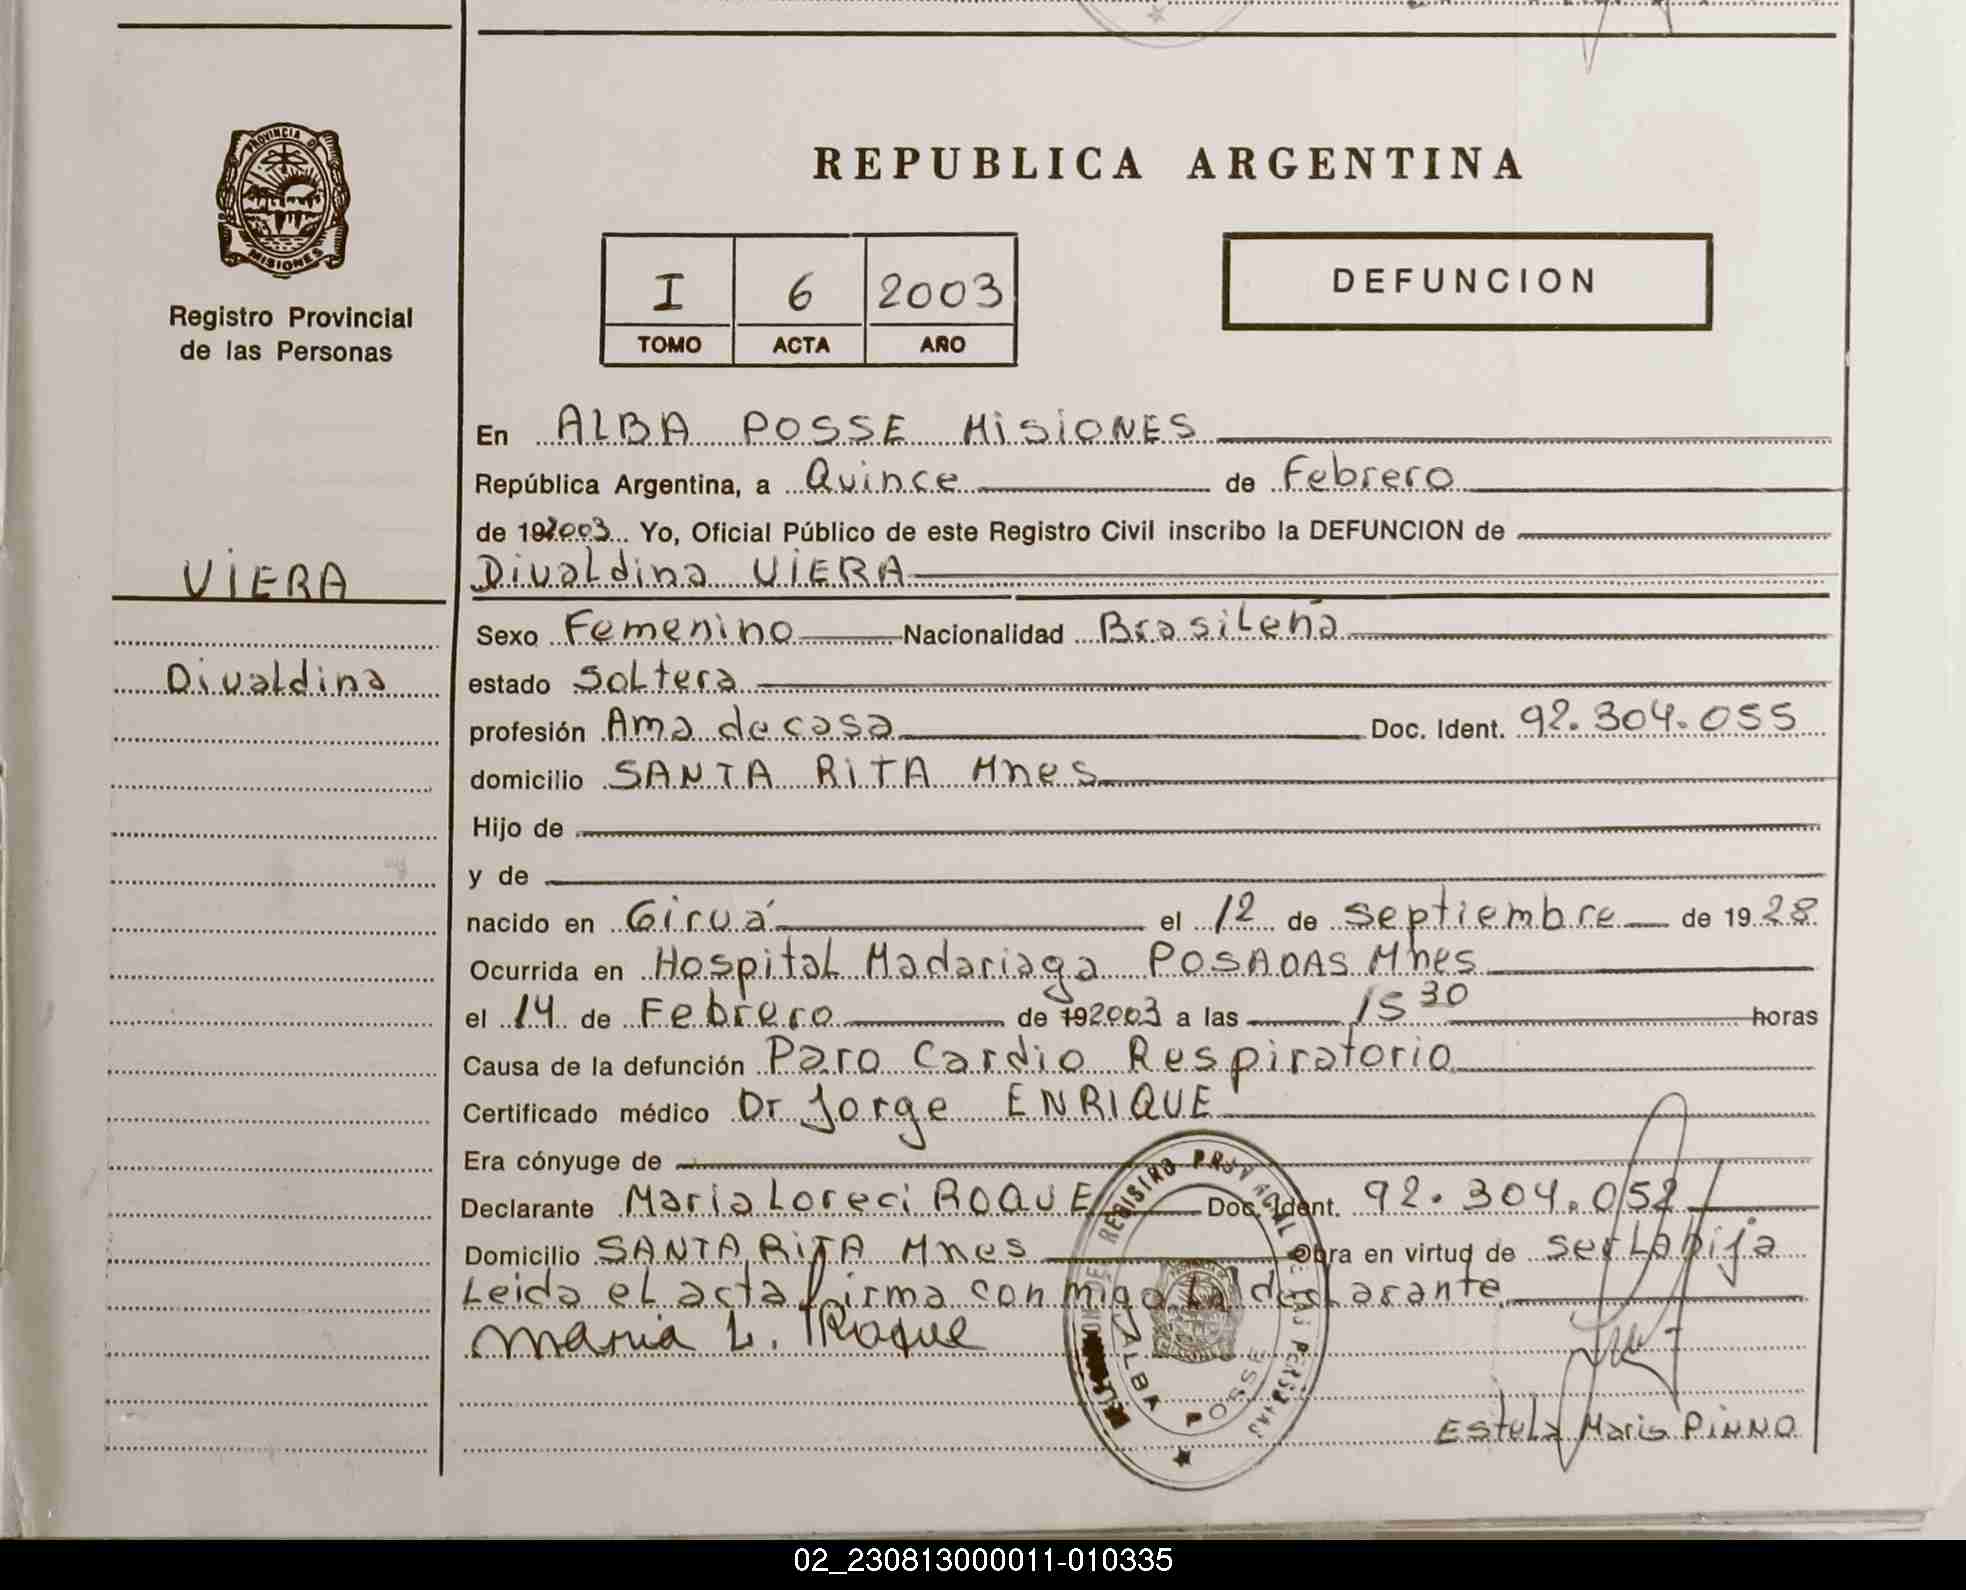 PROVINCIA DE
MISIONES
Registro Provincial
de las Personas
VIERA
Divaldina
REPUBLICA ARGENTINA
I 6 2003
TOMO ACTA AÑO
DEFUNCION
En ALBA POSSE MISIONES
República Argentina, a Quince de Febrero
de 192003 Yo, Oficial Público de este Registro Civil inscribo la DEFUNCION de
Divaldina VIERA
Sexo Femenino Nacionalidad Brasileña
estado Soltera
profesión Ama de casa Doc. Ident. 92.304.055
domicilio SANTA RITA Mnes
Hijo de
y de
nacido en Giruá el 12 de Septiembre de 19 28
Ocurrida en Hospital Madariaga POSADAS Mnes
el 14 de Febrero de 192003 a las 15 30 horas
Causa de la defunción Paro Cardio Respiratorio
Certificado médico Dr Jorge ENRIQUE
Era cónyuge de
Declarante Maria Loreci ROQUE Doc. Ident. 92.304.052
Domicilio SANTA RITA Mnes Obra en virtud de ser La hija
Leida el acta firma conmigo La declarante
Maria L. Roque
REGISTRO PROVINCIAL DE LAS PERSONAS
ALBA POSSE
Estela Maris PINNO
02_230813000011-010335